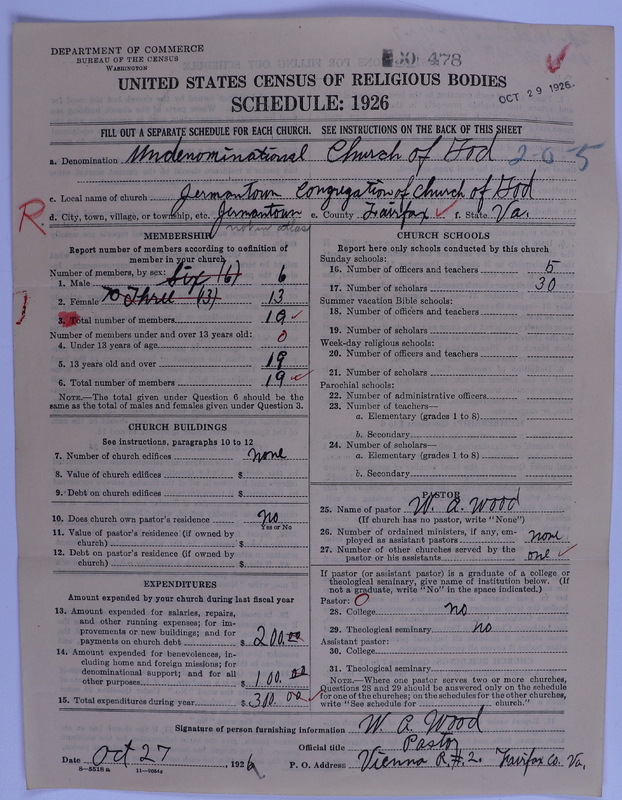 DEPARTMENT OF COMMERCE
BUREAU OF THE CENSUS
WASHINGTON
478
UNITED STATES CENSUS OF RELIGIOUS BODIES
SCHEDULE: 1926
OCT 29 1926
FILL OUT A SEPARATE SCHEDULE FOR EACH CHURCH. SEE INSTRUCTIONS ON THE BACK OF THIS SHEET
a. Denomination Undenominational Church of God 205
c. Local name of church Jermantown Congregation of Church of God
R
d. City, town, village, or township, etc. Jermantown e. County Fairfax f. State Va.
not in atlas
MEMBERSHIP
Report number of members according to definition of
member in your church
Number of members, by sex:
1. Male Six (6) 6
2. Female Three (3) 13
3. Total number of members 19
Number of members under and over 13 years old:
4. Under 13 years of age 0
5. 13 years old and over 19
6. Total number of members 19
NOTE.—The total given under Question 6 should be the
same as the total of males and females given under Question 3.
CHURCH BUILDINGS
See instructions, paragraphs 10 to 12
7. Number of church edifices none
8. Value of church edifices $
9. Debt on church edifices $
10. Does church own pastor's residence no
Yes or No
11. Value of pastor's residence (if owned by
church) $
12. Debt on pastor's residence (if owned by
church) $
EXPENDITURES
Amount expended by your church during last fiscal year
13. Amount expended for salaries, repairs,
and other running expenses; for im-
provements or new buildings; and for
payments on church debt $ 200.00
14. Amount expended for benevolences, in-
cluding home and foreign missions; for
denominational support; and for all
other purposes $ 100.00
15. Total expenditures during year $ 300.00
CHURCH SCHOOLS
Report here only schools conducted by this church
Sunday schools:
16. Number of officers and teachers 5
17. Number of scholars 30
Summer vacation Bible schools:
18. Number of officers and teachers
19. Number of scholars
Week-day religious schools:
20. Number of officers and teachers
21. Number of scholars
Parochial schools:
22. Number of administrative officers
23. Number of teachers—
a. Elementary (grades 1 to 8)
b. Secondary
24. Number of scholars—
a. Elementary (grades 1 to 8)
b. Secondary
PASTOR
25. Name of pastor W. A. Wood
(If church has no pastor, write "None")
26. Number of ordained ministers, if any, em-
ployed as assistant pastors none
27. Number of other churches served by the
pastor or his assistants one
If pastor (or assistant pastor) is a graduate of a college or
theological seminary, give name of institution below. (If
not a graduate, write "No" in the space indicated.)
Pastor: 0
28. College no
29. Theological seminary no
Assistant pastor:
30. College
31. Theological seminary
NOTE.—Where one pastor serves two or more churches,
Questions 28 and 29 should be answered only on the schedule
for one of the churches; on the schedules for the other churches,
write "See schedule for church."
Signature of person furnishing information W. A. Wood
Official title Pastor
Date Oct 27, 1926 P. O. Address Vienna R.F. 2. Fairfax Co. Va.
8—5518 a 11—9684a